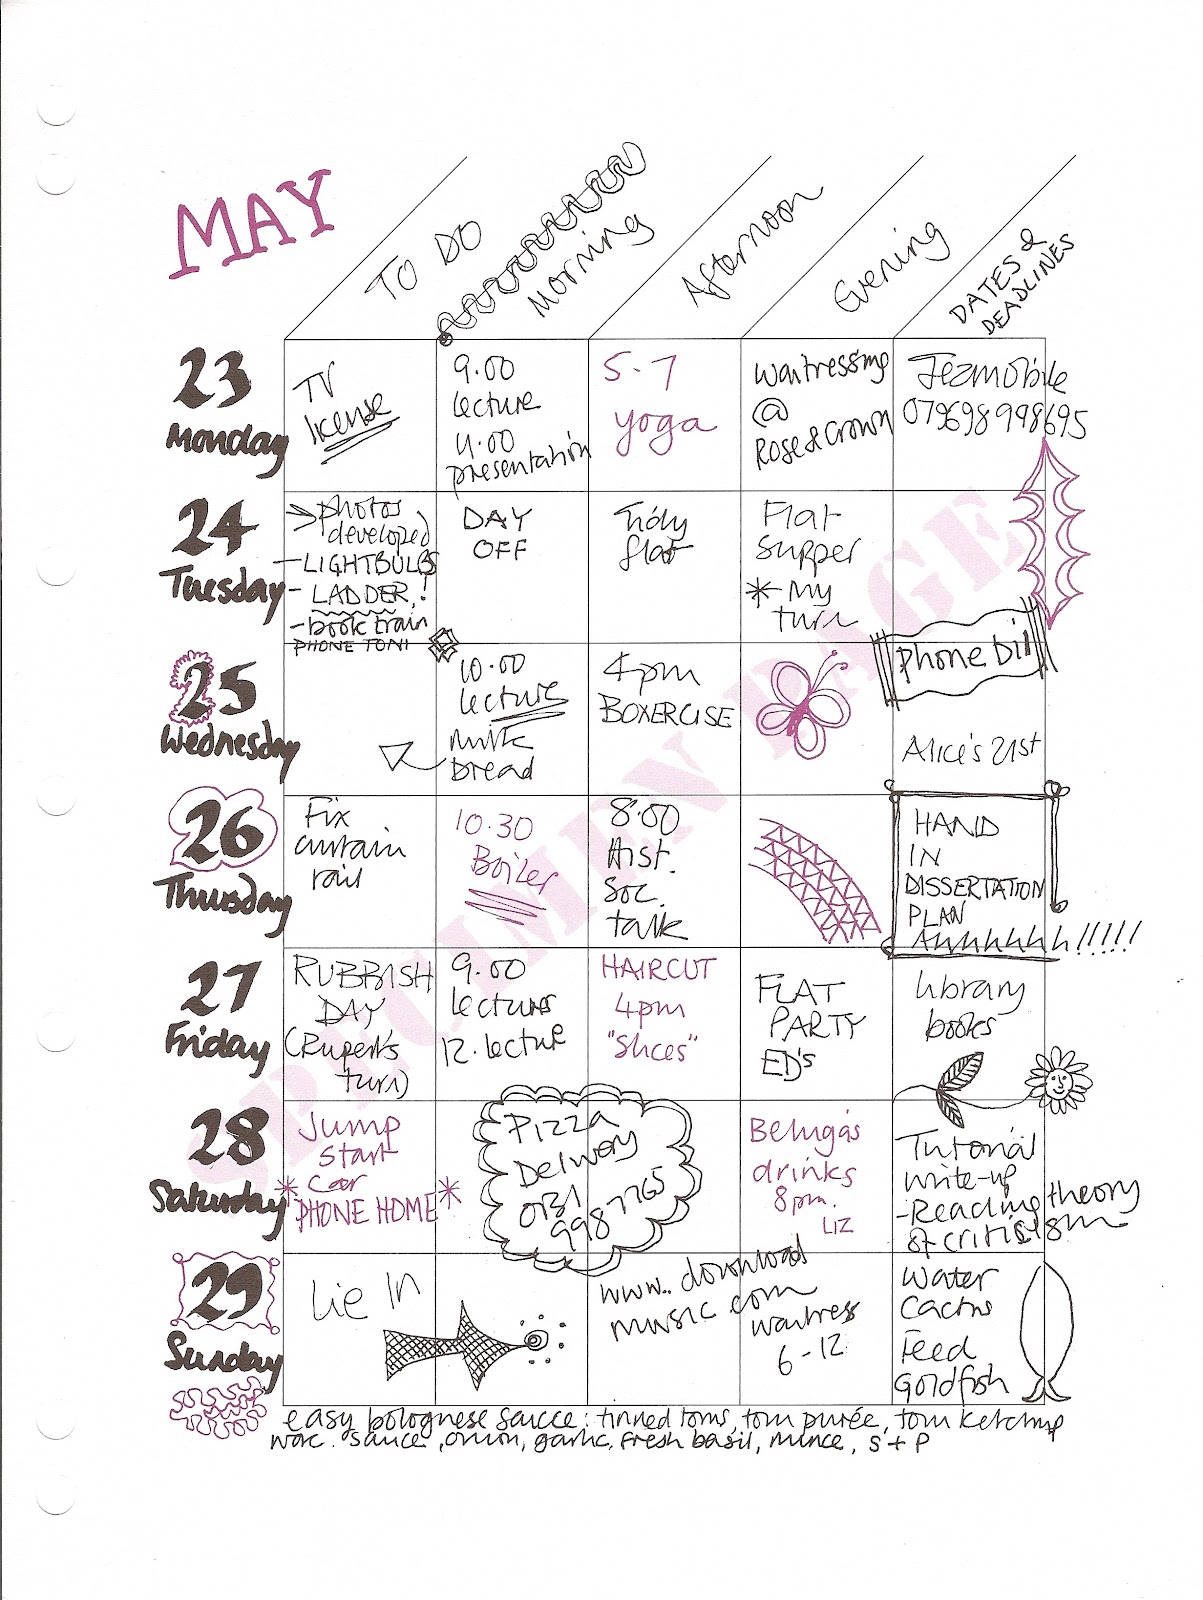 MAY
TO DO
Morning
Afternoon
Evening
DATES &
DEADLINES
23
Monday
TV
license
9.00
lecture
4.00
presentation
5-7
yoga
Waitressing
@
Rose & Crown
Jezmobile
079698998695
24
Tuesday
photos
developed
- LIGHTBULBS
- LADDER!
- book train
PHONE TONI
DAY
OFF
Tidy
flat
Flat
Supper
* - My
turn
25
Wednesday
10.00
lecture
milk
bread
4pm
BOXERCISE
phone bill
Alice's 21st
26
Thursday
Fix
curtain
rail
10.30
Boiler
8.00
Hist.
Soc.
talk
HAND
IN
DISSERTATION
PLAN
Ahhhhhhh!!!!!
27
Friday
RUBBISH
DAY
(Rupert's
turn)
9.00
lectures
12. lecture
HAIRCUT
4pm
"Slices"
FLAT
PARTY
ED's
library
books
28
Saturday
Jump
Start
* Car
PHONE HOME *
Pizza
Delivery
0131
9987765
Beluga's
drinks
8pm.
LIZ
Tutorial
write-up
- Reading theory
of criticism
29
Sunday
Lie In
www..download
music.com
waitress
6-12
Water
Cactus
Feed
Goldfish
easy bolognese sauce: tinned toms, tom purée, tom ketchup
worc. sauce, onion, garlic, fresh basil, mince, s + p
SPECIMEN PAGE